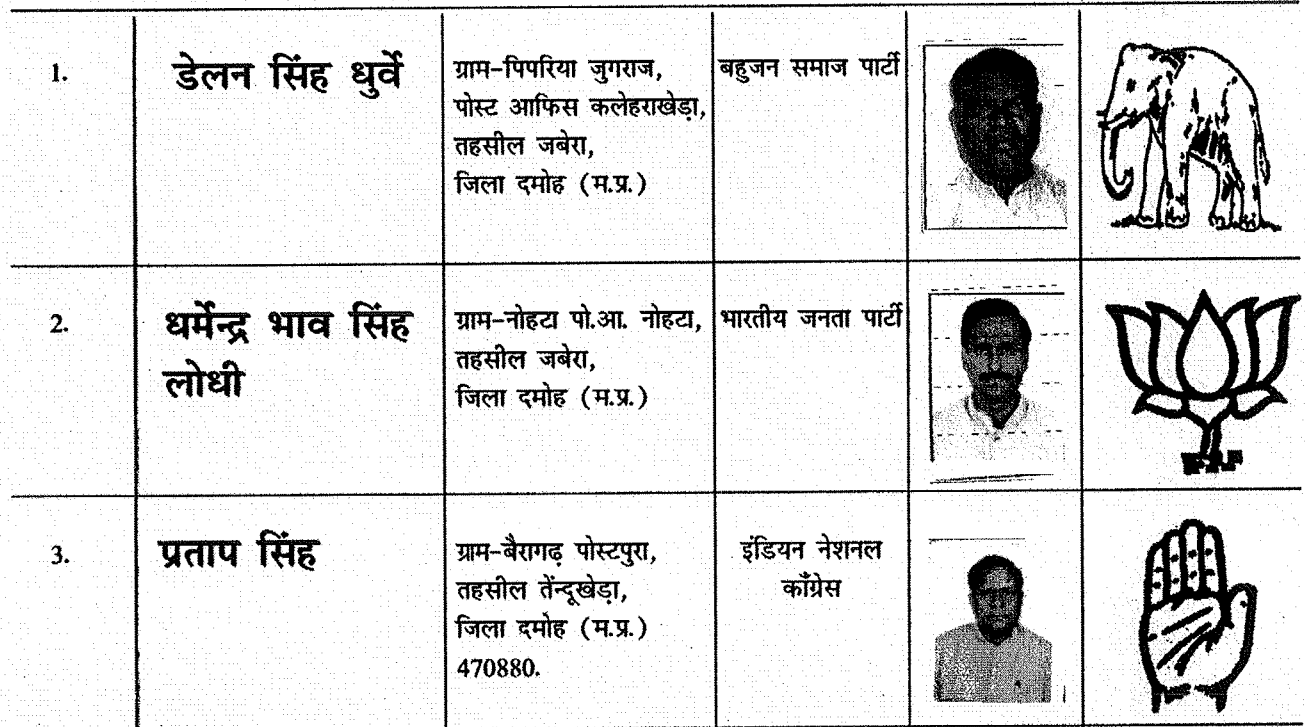 1.
डेलन सिंह धुर्वे
ग्राम-पिपरिया जुगराज,
पोस्ट आफिस कलेहराखेड़ा,
तहसील जबेरा,
जिला दमोह (म.प्र.)
बहुजन समाज पार्टी
2.
धर्मेन्द्र भाव सिंह
लोधी
ग्राम-नोहटा पो.आ. नोहटा,
तहसील जबेरा,
जिला दमोह (म.प्र.)
भारतीय जनता पार्टी
3.
प्रताप सिंह
ग्राम-बैरागढ़ पोस्टपुरा,
तहसील तेंन्दूखेड़ा,
जिला दमोह (म.प्र.)
470880.
इंडियन नेशनल
काँग्रेस